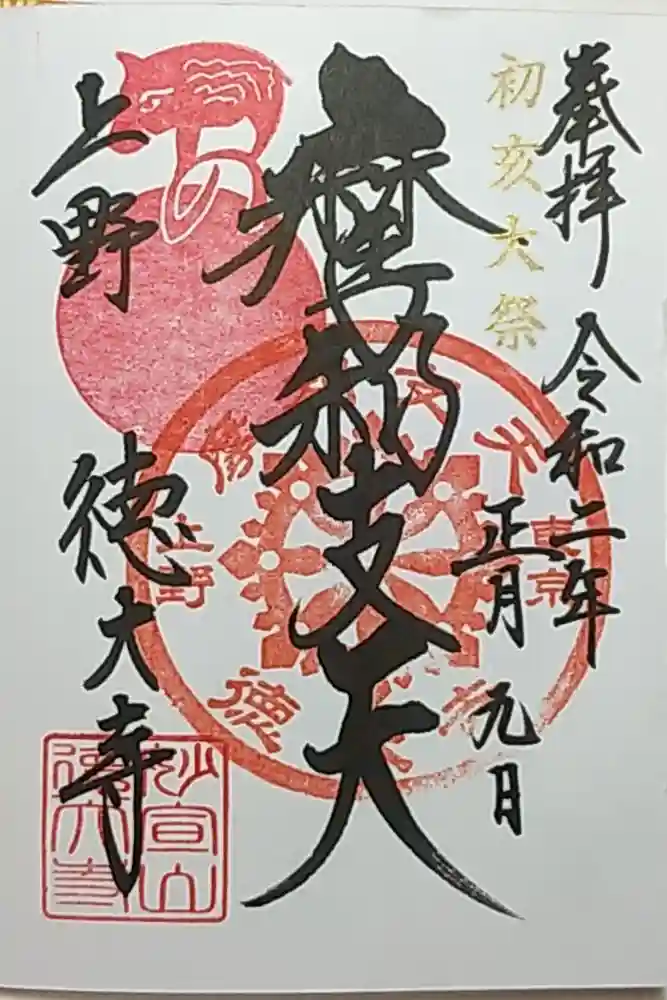 奉拝
令和二年
正月九日
初亥大祭
摩利支天
上野
徳大寺
東京
上野
天
徳
寺
妙宣山
徳大寺